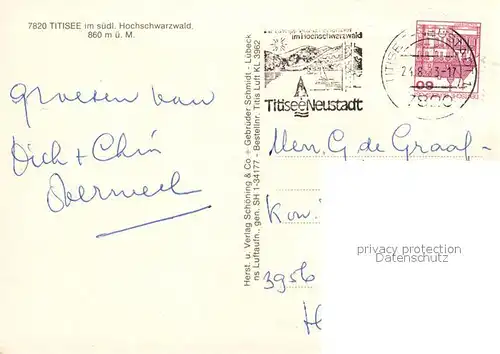 7820 TITISEE im südl. Hochschwarzwald,
860 m ü. M.
im Hochschwarzwald
Titisee Neustadt
TITISEE-NEUSTADT
24.8. 3-17
7820
Groeten van
Dich + Chin
Herst. u. Verlag Schöning & Co + Gebrüder Schmidt - Lübeck
ns Luftaufn., gen. SH 1-34177 - Bestellnr. Titis Luft KL 3962
Men. G de Graaf-
Kon.
3956
privacy protection
Datenschutz